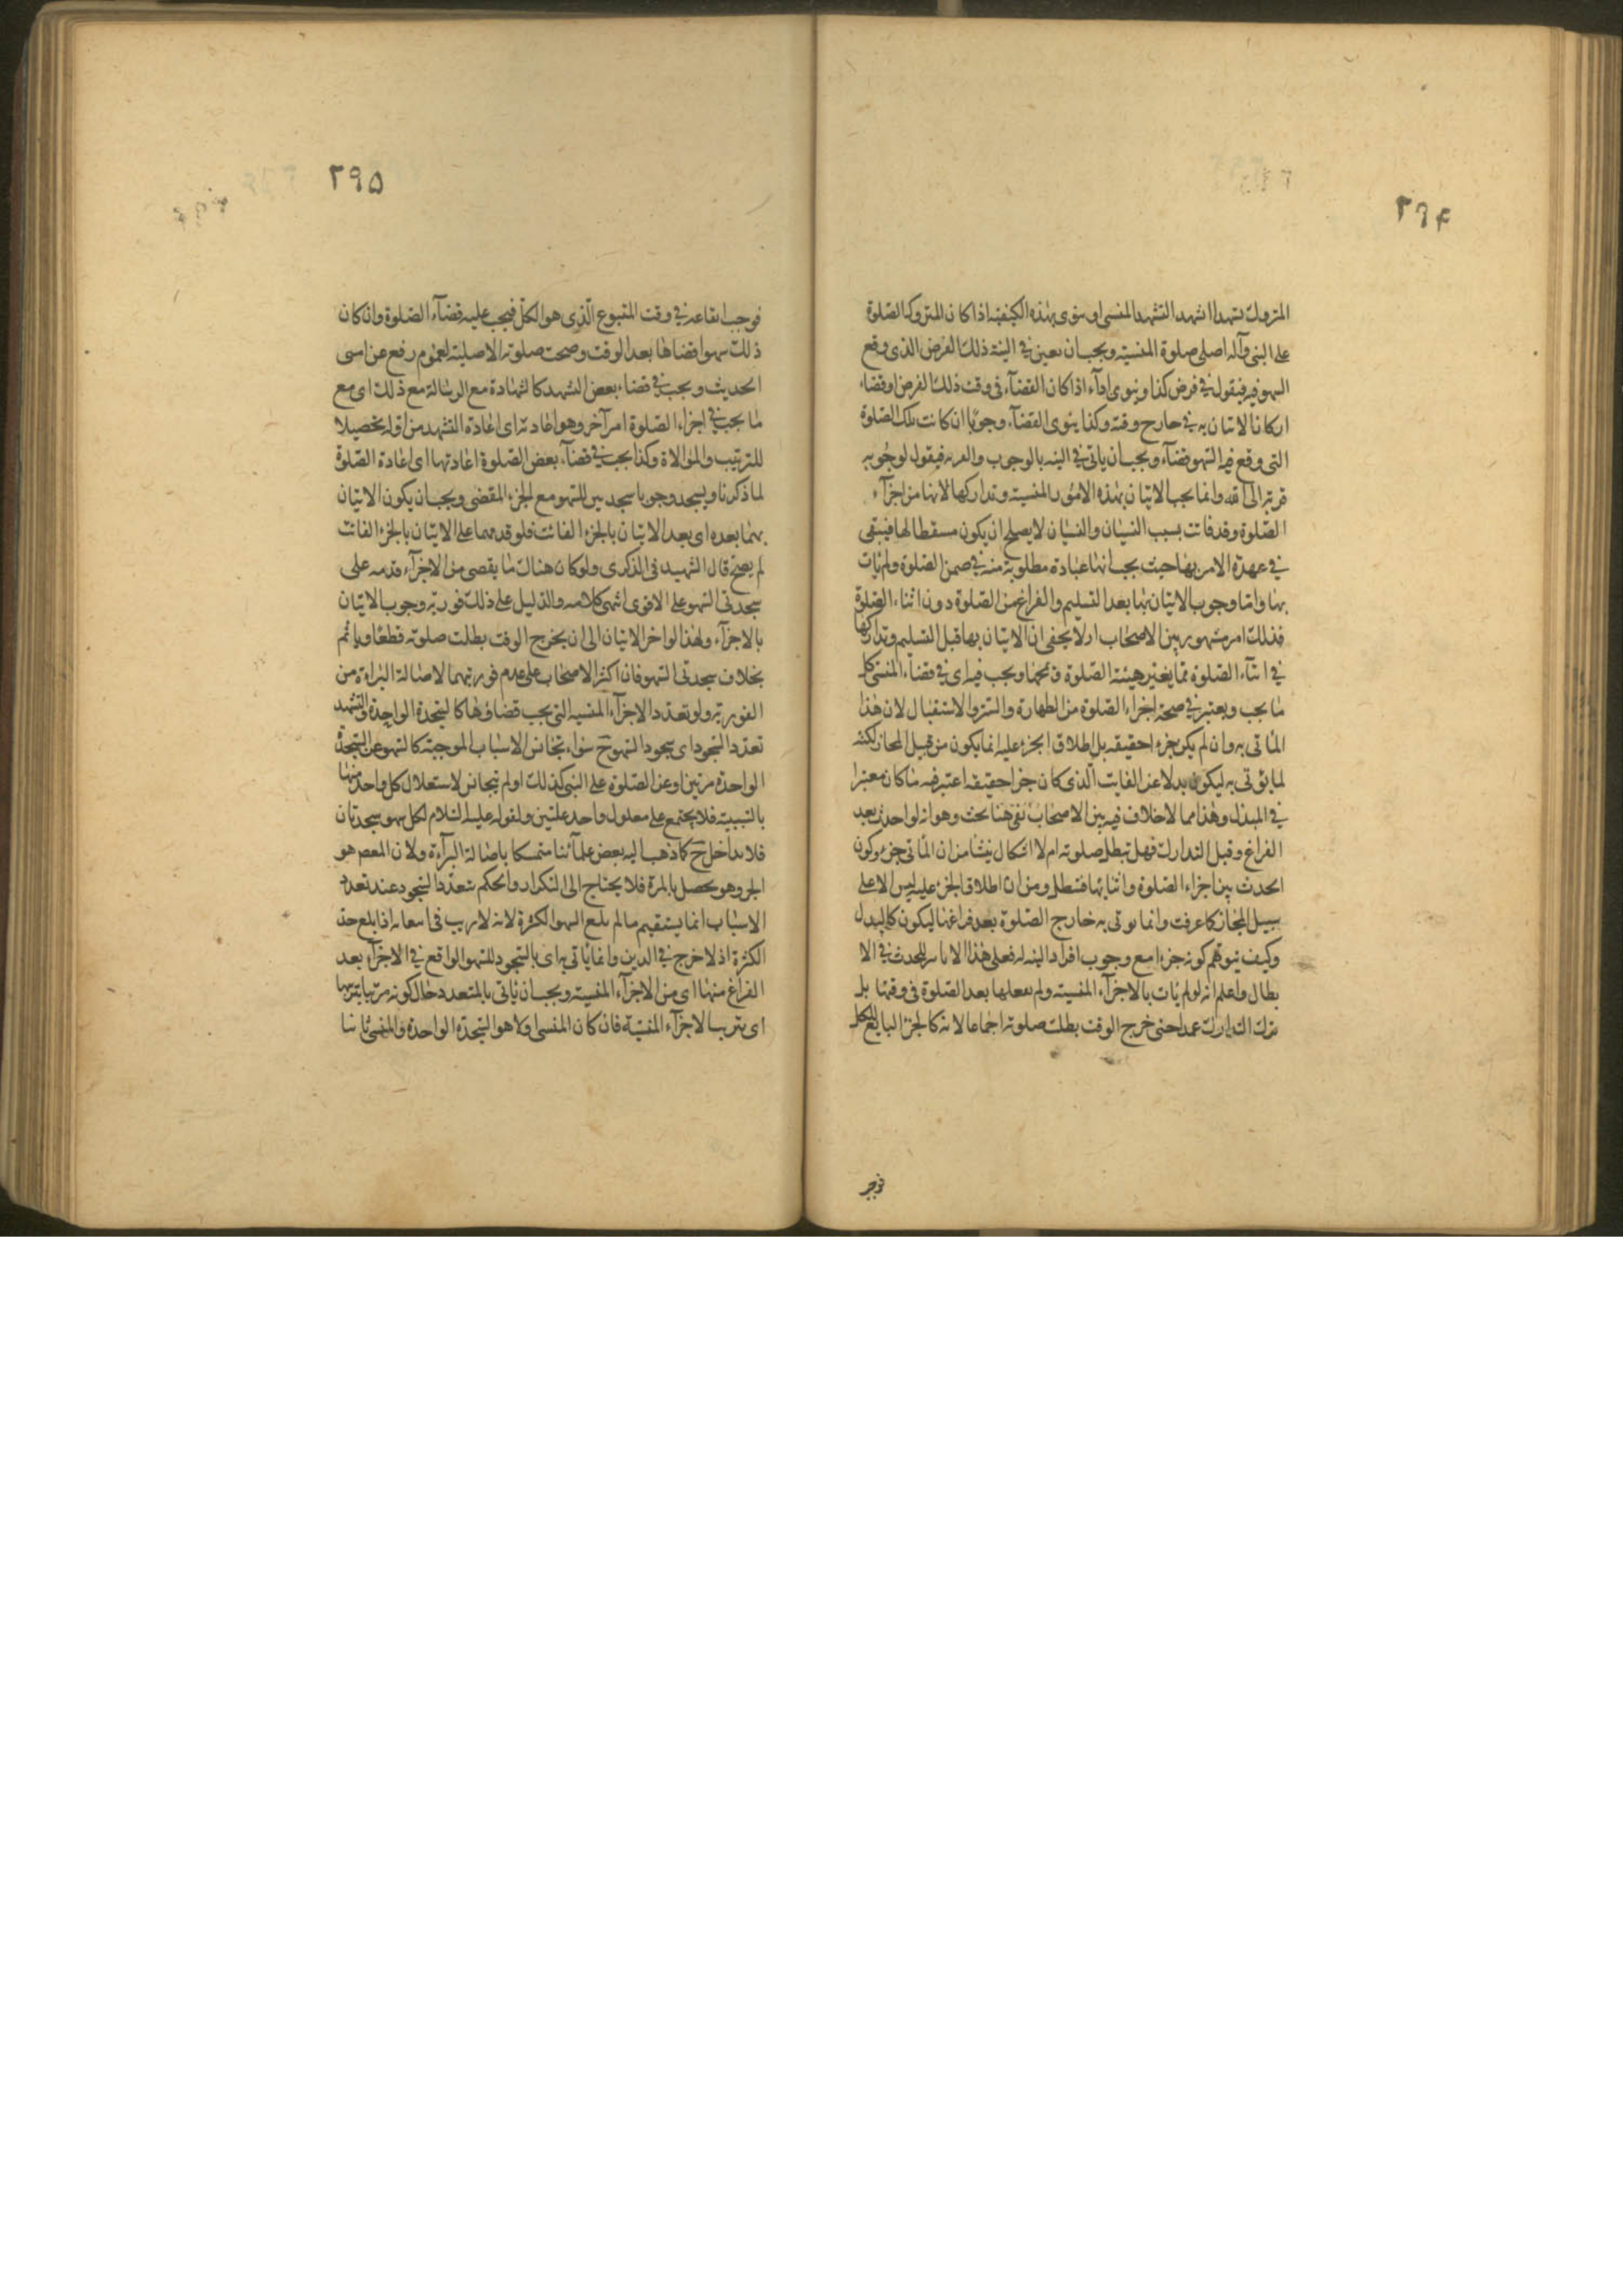 ٢٩۴
المتروك تشهدا اشهد التشهد المنسى او ينوى بهذه الكيفية اذا كان المتروك الصلوة
على النبى وآله اصلى صلوة المنسية ويجب ان يعين فى النية ذلك الفرض الذى وقع
السهو فيه فيقول فى فرض كذا وينوى اداء اذا كان القضآء فى وقت ذلك الفرض او قضاء
ان كان الاتيان به فى خارج وقته وكذا ينوى القضآء وجوبا ان كانت تلك الصلوة
التى وقع فيه السهو قضآء ويجب ان ياتى فى النية بالوجوب والقربة فيقول لوجوبه
قربة الى الله وانما يجب الاتيان بهذه الامور المنسية وتداركها لانها من اجزآء
الصلوة وقد فاتت بسبب النسيان والنسيان لا يصلح ان يكون مسقطا لها فيبقى
فى عهدة الامر بها حيث يجب انها عبادة مطلوبة منه فى ضمن الصلوة ولم يات
بها واما وجوب الاتيان بها بعد التسليم والفراغ من الصلوة دون اثناء الصلوة
فذلك امر مشهور بين الاصحاب اذ لا يخفى ان الاتيان بها قبل التسليم وتداركها
فى اثنآء الصلوة مما يغير هيئة الصلوة ويجب فيه اى فى قضاء المنسى كل
ما يجب ويعتبر فى صحة اجزاء الصلوة من الطهارة والستر والاستقبال لان هذا
المأتى به وان لم يكن جزء حقيقة بل اطلاق الجزء عليه انما يكون من قبيل المجاز لكنه
لما يؤتى به ليكون بدلا عن الفايت الذى كان جزا حقيقة اعتبر فيه ما كان معتبرا
فى المبدل وهذا مما لا خلاف فيه بين الاصحاب بقى هنا بحث وهو انه لو احدث بعد
الفراغ وقبل التدارك فهل تبطل صلوته ام لا اشكال ينشا من ان المأتى جزء وكون
الحدث بين اجزاء الصلوة واثنائها فتبطل ومن ان اطلاق الجزء عليه ليس الا على
سبيل المجاز كما عرفت وانما يوتى به خارج الصلوة بعد فراغها ليكون كالبدل
وكيف يتوهم كونه جزءا مع وجوب افراد النية له فعلى هذا لا تاثير للحدث فى الا
بطال واعلم انه لو لم يات بالاجزآء المنسية ولم يفعلها بعد الصلوة فى وقتها بل
ترك التدارك عمدا حتى خرج الوقت بطلت صلوته اجماعا لانه كالجزء التابع للكل
فوجب
٢٩۵
فوجب ايقاعه فى وقت المتبوع الذى هو الكل فيجب عليه قضآء الصلوة وان كان
ذلك سهوا قضاها بعد الوقت وصحت صلوته الاصلية لعموم رفع عن امتى
الحديث ويجب فى قضاء بعض التشهد كالشهادة مع الرسالة مع ذلك اى مع
ما يجب فى اجزاء الصلوة امر آخر وهو اعادته اى اعادة التشهد من اوله تحصيلا
للترتيب والموالاة وكذا يجب فى قضآء بعض الصلوة اعادتها اى اعادة الصلوة
لما ذكرنا ويسجد وجوبا سجدتين للسهو مع الجزء المقضى ويجب ان يكون الاتيان
بهما بعده اى بعد الاتيان بالجزء الفائت فلو قدمهما على الاتيان بالجزء الفائت
لم يصح قال الشهيد فى الذكرى ولو كان هناك ما يقضى من الاجزآء قدمه على
سجدتى السهو على الاقوى انتهى كلامه والدليل على ذلك فورية وجوب الاتيان
بالاجزآء ولهذا لو اخر الاتيان الى ان يخرج الوقت بطلت صلوته قطعا وياثم
بخلاف سجدتى السهو فان اكثر الاصحاب على عدم فوريتهما لاصالة البراءة من
الفورية ولو تعدد الاجزآء المنسية التى يجب قضاؤها كالسجدة الواحدة والتشهد
تعدد السجود اى سجود السهو ح سواء تجانس الاسباب الموجبة كالسهو عن السجدة
الواحدة مرتين او عن الصلوة على النبى كذلك او لم يتجانس لاستقلال كل واحد منها
بالسببية فلا يجتمع على معلول واحد علتين ولقوله عليه السلام لكل سهو سجدتان
فلا تداخل ح كما ذهب اليه بعض علمآئنا متمسكا باصالة البرآءة ولان المعص هو
الجر وهو يحصل بالمرة فلا يحتاج الى التكرار والحكم بتعدد السجود عند تعدد
الاسباب انما يستقيم ما لم يبلغ السهو الكثرة لانه لا ريب فى اتفائه اذا بلغ حد
الكثرة اذ لا حرج فى الدين وانما ياتى به اى بالسجود للسهو الواقع فى الاجزآء بعد
الفراغ منها اى من الاجزآء المنسية ويجب ان ياتى بالمتعدد حال كونه مرتبا بترتيبها
اى بترتيب الاجزآء المنسية فان كان المنسى اولا هو السجدة الواحدة والمنسى ثانيا